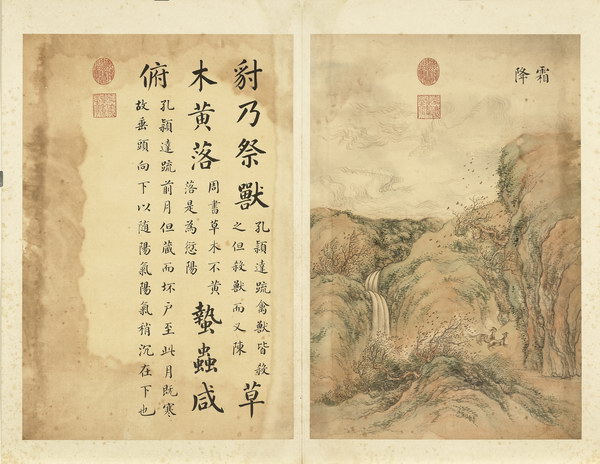 霜降
豺乃祭獸
孔穎達疏禽獸皆殺
之但殺獸而又陳
草
木黃落
周書草木不黃
落是為愆陽
蟄蟲咸
俯
孔穎達疏前月但藏而坏戶至此月既寒
故垂頭向下以隨陽氣陽氣稍沉在下也